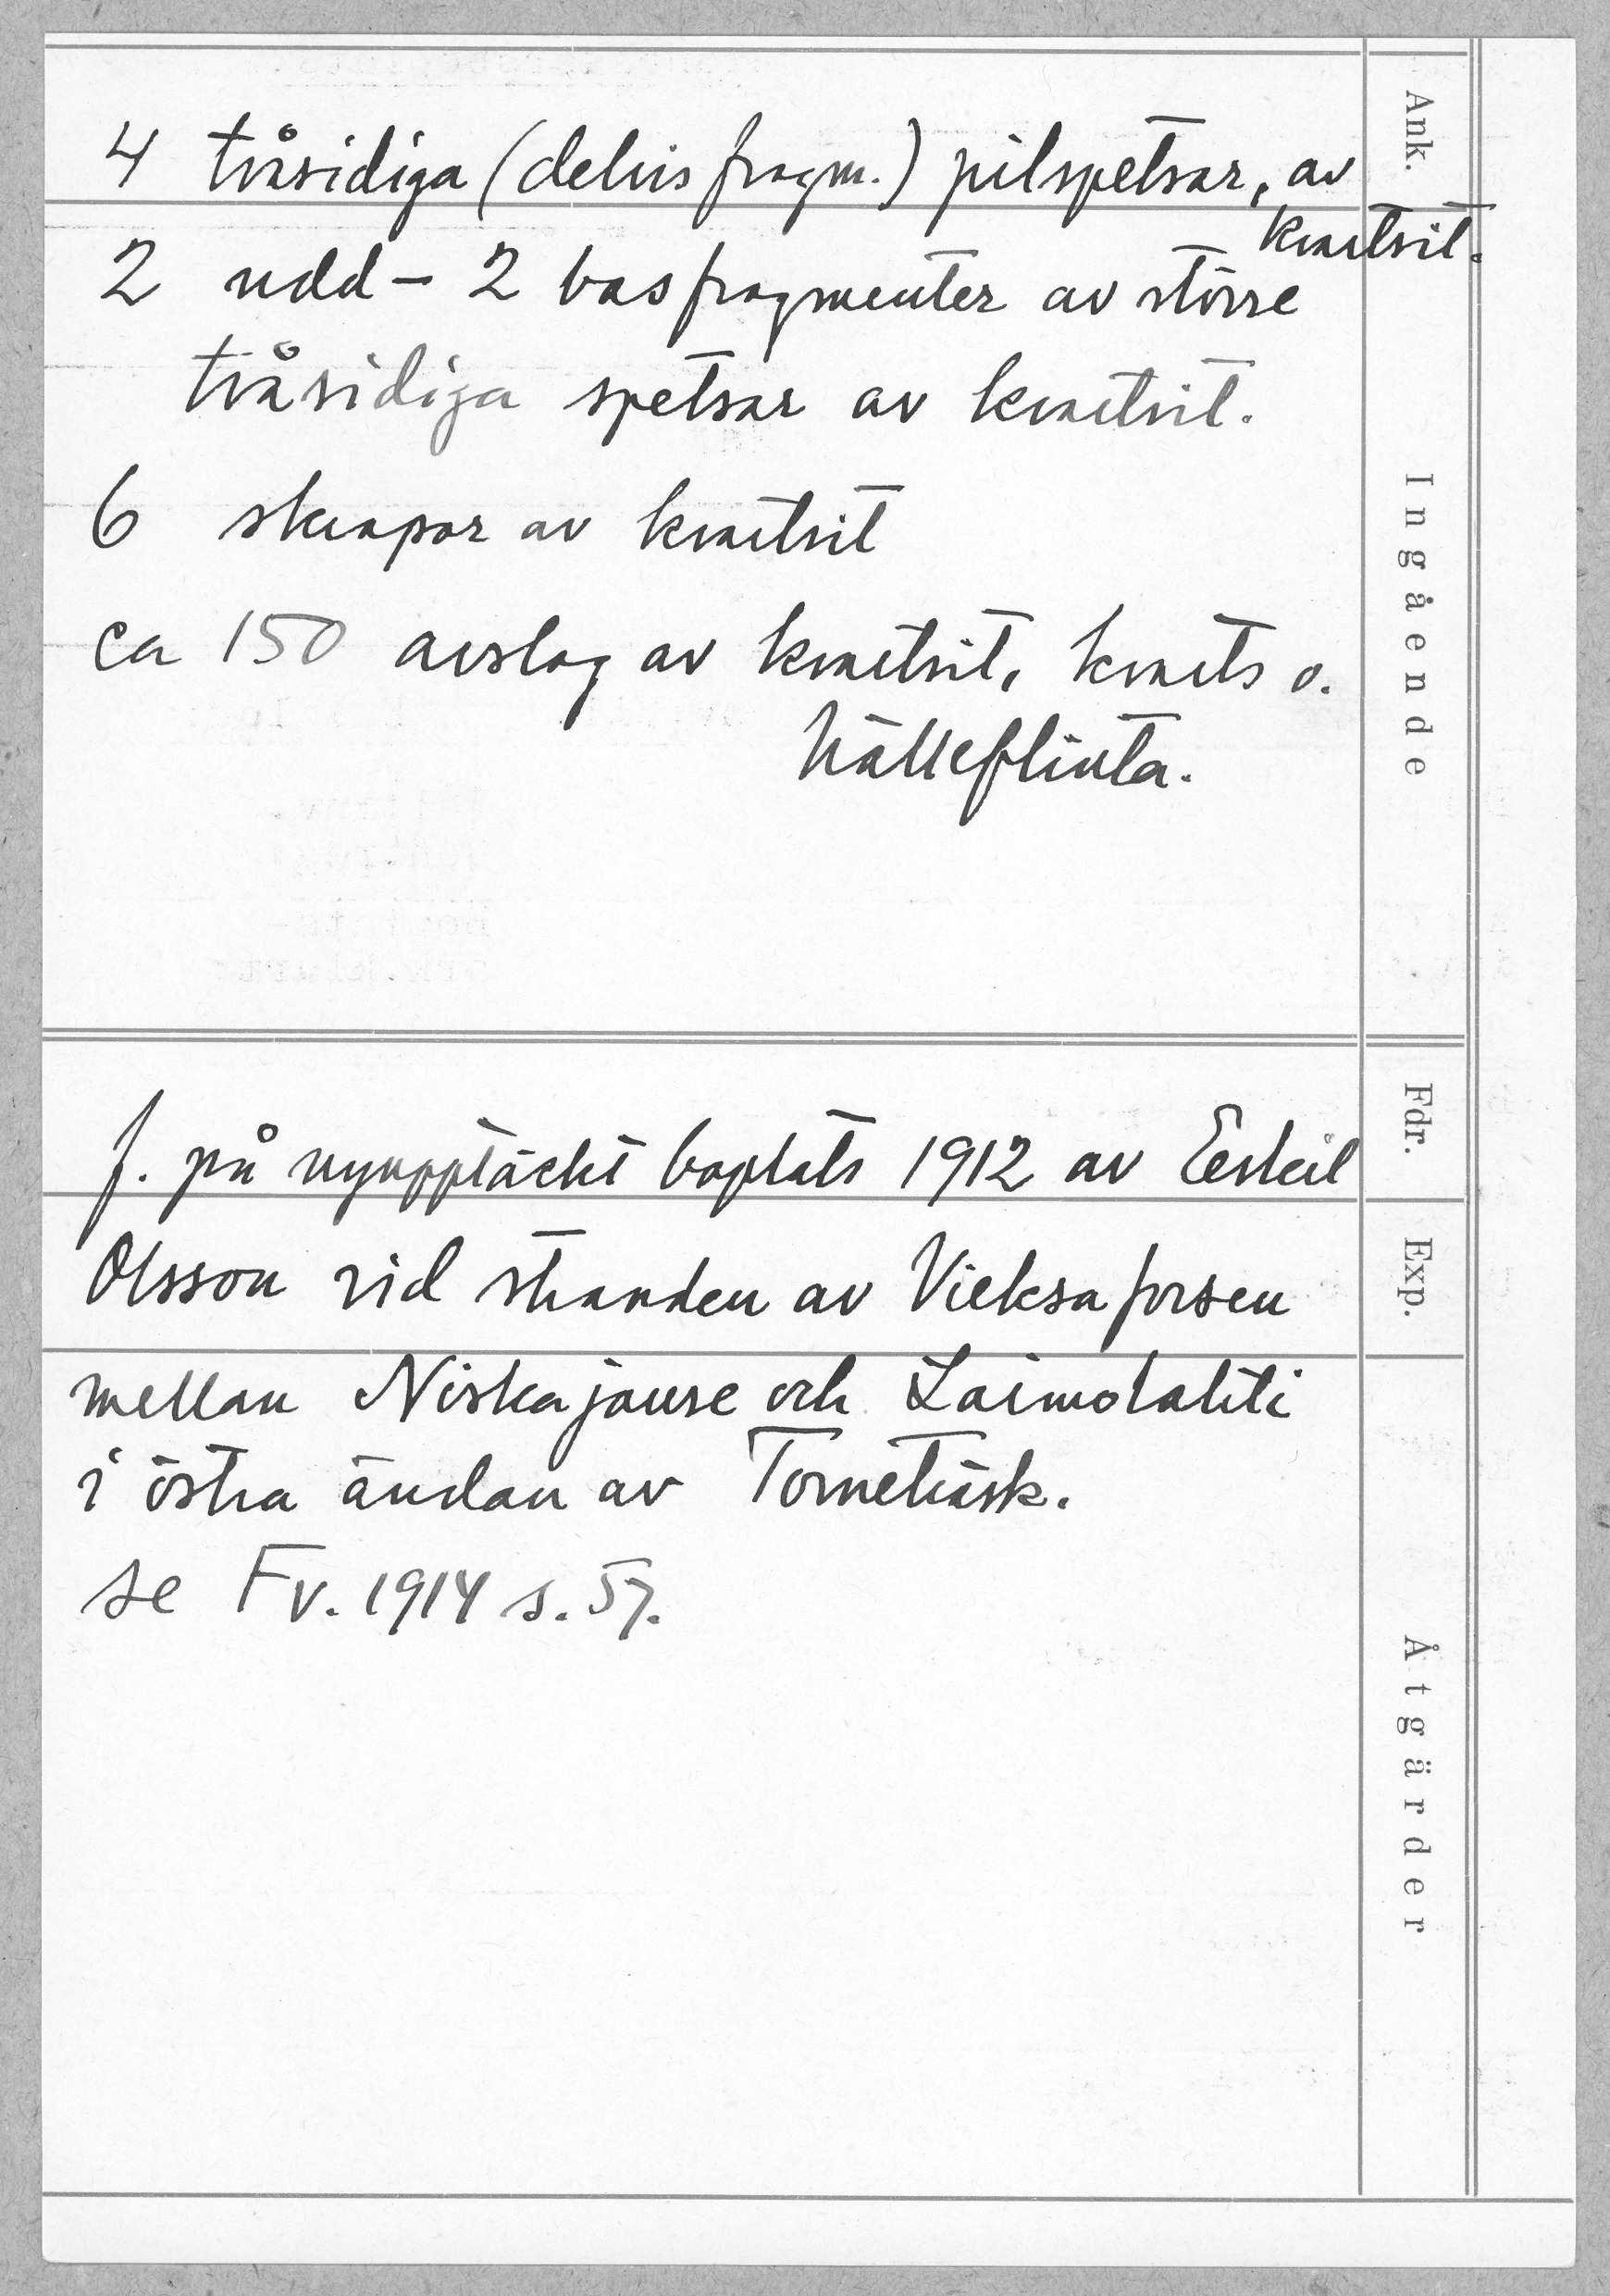 4 tvåsidiga (delvis fragm.) pilspetsar, av
kvartsit.
2 udd- 2 basfragmenter av större
tvåsidiga spetsar av kvartsit.
6 skrapor av kvartsit
ca 150 avslag av kvartsit, kvarts o.
hälleflinta.
f. på nyupptäckt boplats 1912 av Eskil
Olsson vid stranden av Vieksaforsen
mellan Niskajaure och Laimolahti
i östra ändan av Torneträsk.
se Fv. 1914 s. 57.
Ank.
Ingående
Fdr.
Exp.
Åtgärder